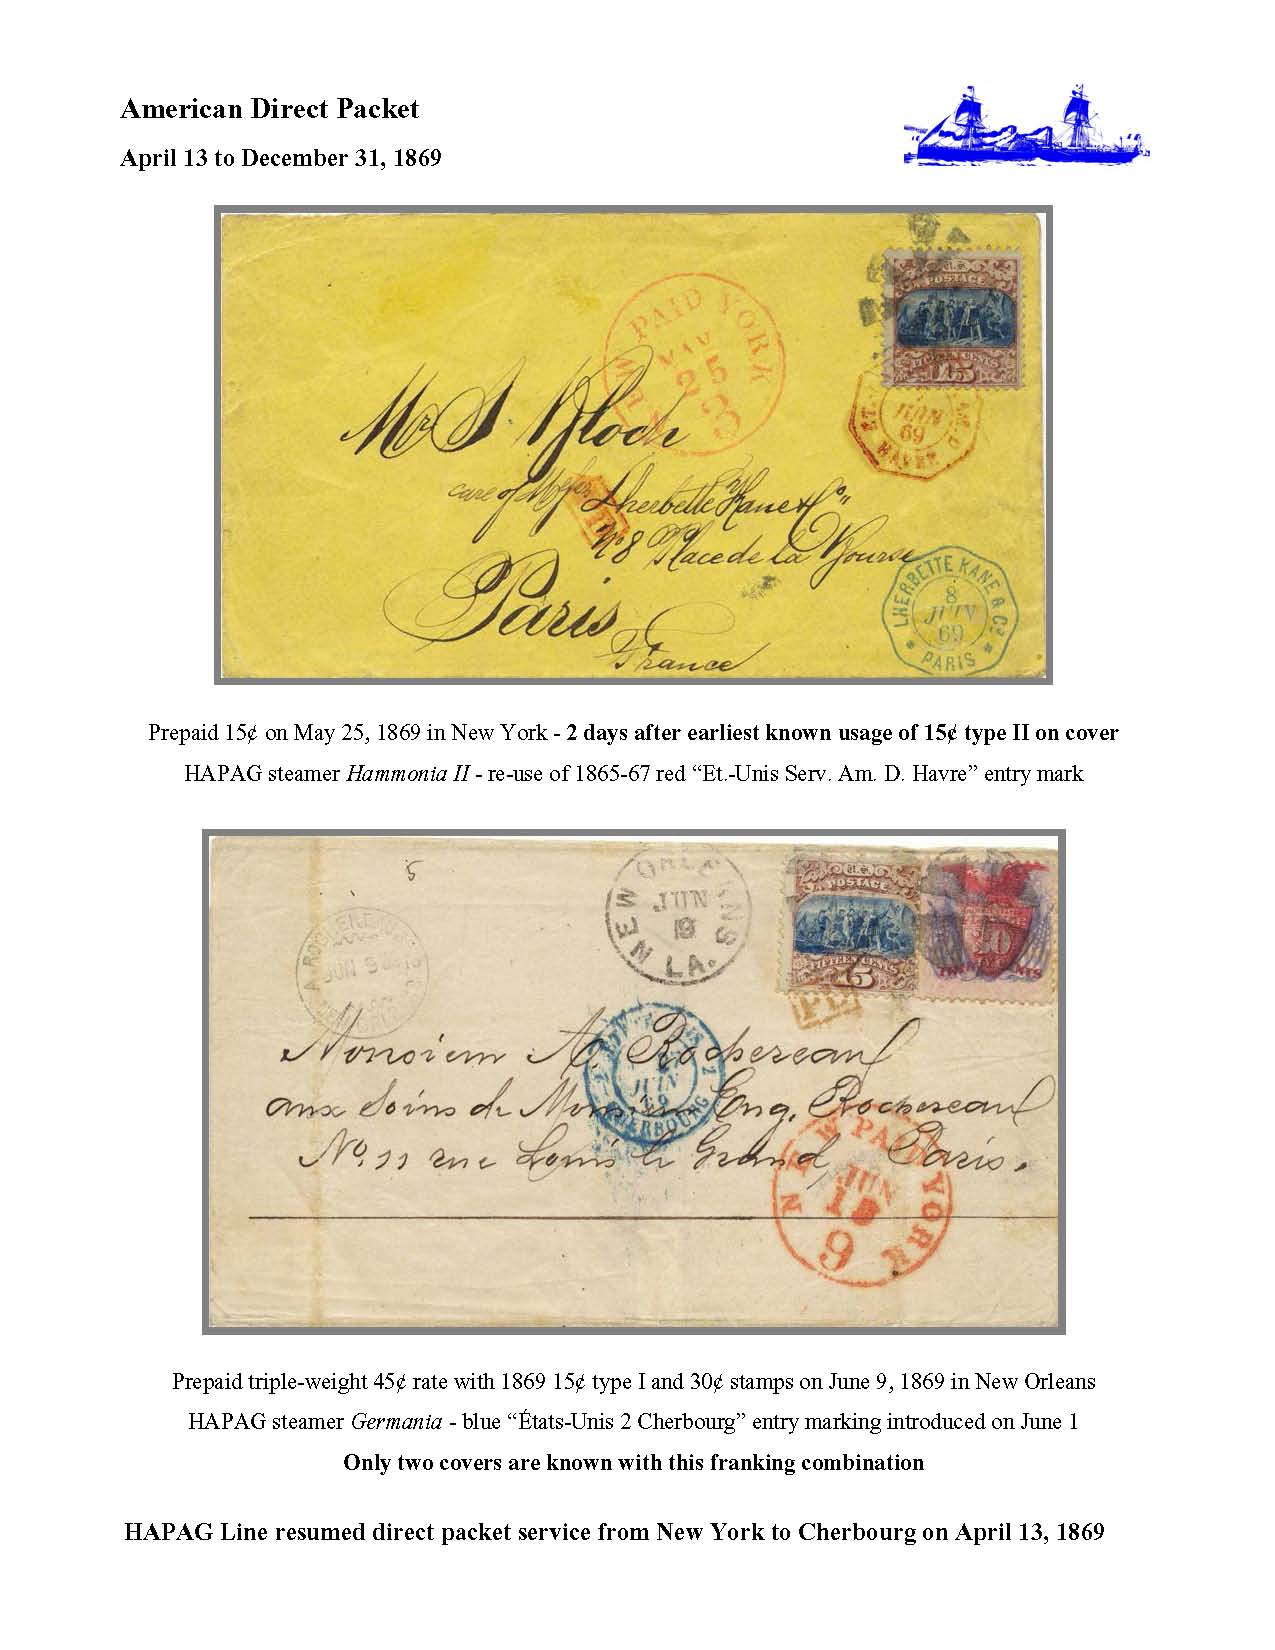 American Direct Packet
April 13 to December 31, 1869
U.S. POSTAGE
FIFTEEN CENTS
15
PAID YORK
MAY
25
3
JUIN
69
HAVRE
Mr. S. Bloch
care of Messrs Lherbette Kane & Co.
No 8 Place de la Bourse
Paris
France
LHERBETTE KANE & Co.
8
JUIN
69
* PARIS *
Prepaid 15¢ on May 25, 1869 in New York - 2 days after earliest known usage of 15¢ type II on cover
HAPAG steamer Hammonia II - re-use of 1865-67 red “Et.-Unis Serv. Am. D. Havre” entry mark
5
NEW ORLEANS
JUN
LA.
U.S. POSTAGE
FIFTEEN CENTS
15
30
JUN 9
P.D.
Monsieur A. Rochereau
aux soins de Monsieur Eug. Rochereau
No. 11 rue Louis le Grand, Paris.
JUIN
69
CHERBOURG
2
NEW PAID YORK
JUN
9
Prepaid triple-weight 45¢ rate with 1869 15¢ type I and 30¢ stamps on June 9, 1869 in New Orleans
HAPAG steamer Germania - blue “États-Unis 2 Cherbourg” entry marking introduced on June 1
Only two covers are known with this franking combination
HAPAG Line resumed direct packet service from New York to Cherbourg on April 13, 1869